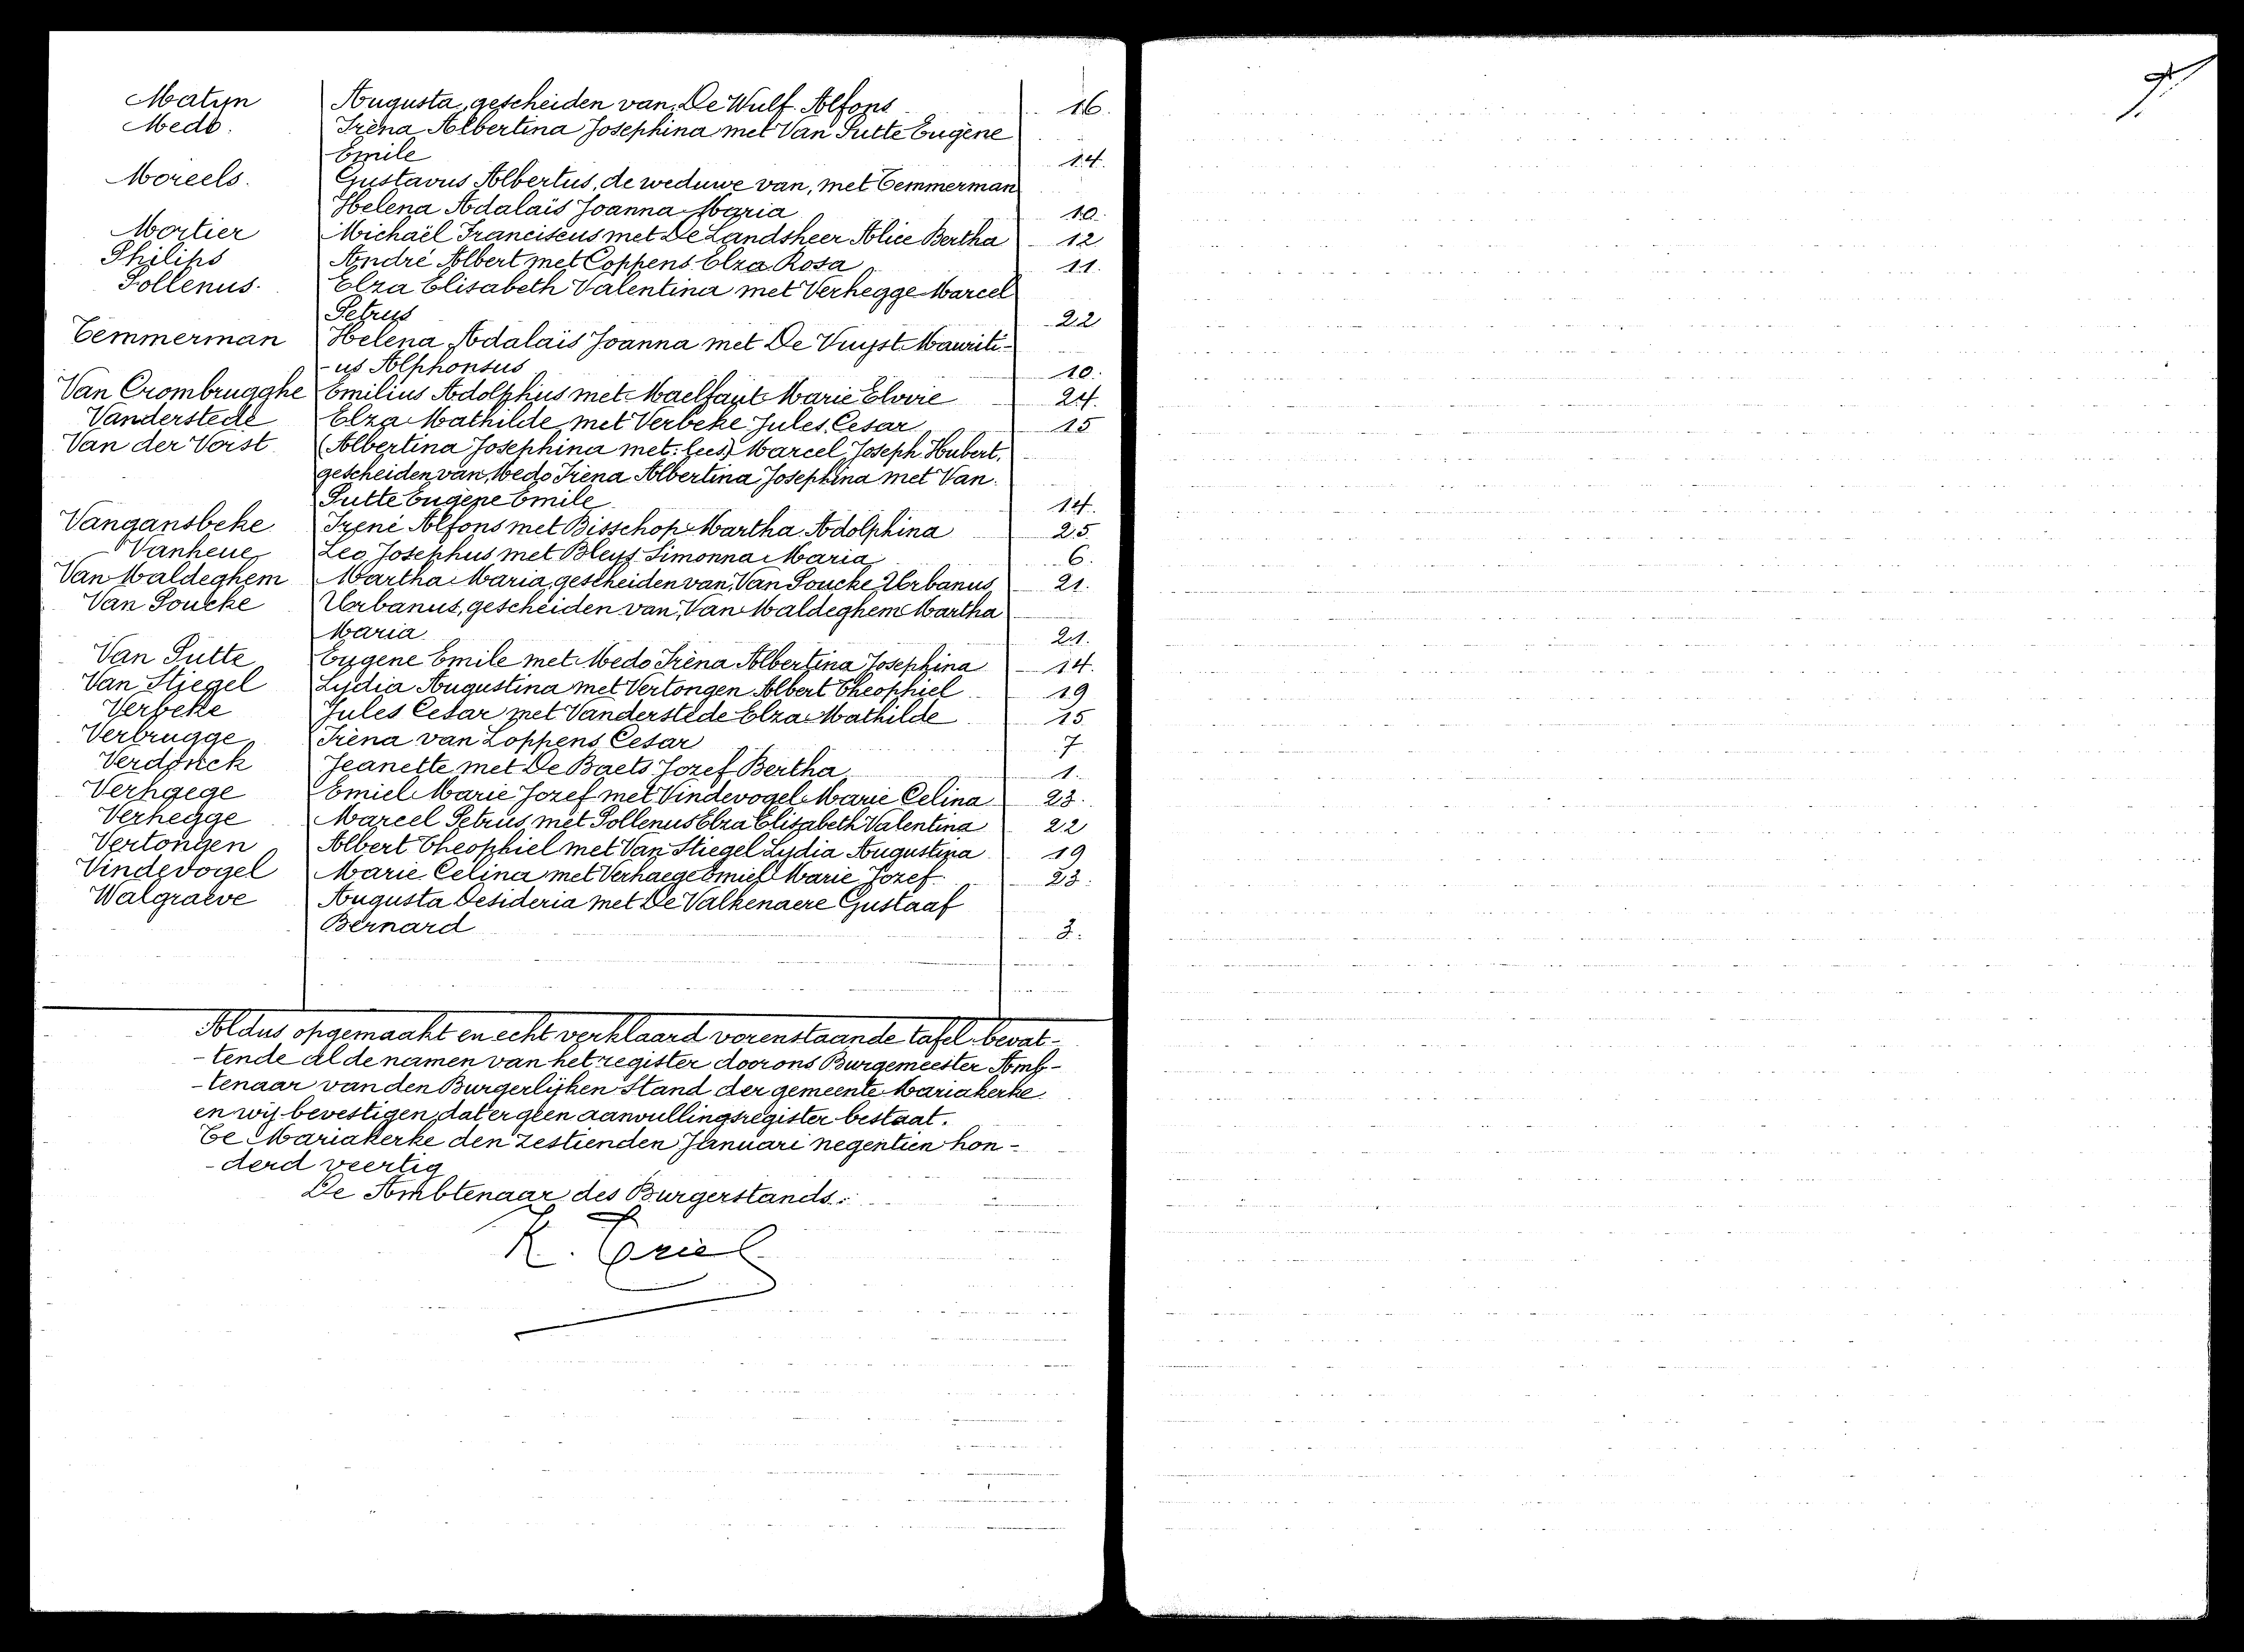 Matijn Augusta, gescheiden van, De Wulf Alfons 16.
Medo. Irèna Albertina Josephina met Van Putte Eugène
Emile 14.
Moreels. Gustavus Albertus, de weduwe van, met Temmerman
Helena Adalaïs Joanna Maria 10.
Mortier Michaël Franciscus met De Landsheer Alice Bertha 12
Philips André Albert met Coppens Elza Rosa 11.
Pollenus. Elza Elisabeth Valentina met Verhegge Marcel
Petrus 22
Temmerman Helena Adalaïs Joanna met De Vuyst Mauriti-
-us Alphonsus 10.
Van Crombrugghe Emilius Adolphus met Maelfaut Marie Elvire 24.
Vanderstede Elza Mathilde met Verbeke Jules Cesar 15
Van der Vorst (Albertina Josephina met: lees) Marcel Joseph Hubert,
gescheiden van, Medo Irena Albertina Josephina met Van
Putte Eugène Emile 14.
Vangansbeke Irené Alfons met Bisschop Martha Adolphina 25.
Vanheue Leo Josephus met Bleys Simonna Maria 6.
Van Maldeghem Martha Maria, gescheiden van, Van Poucke Urbanus 21.
Van Poucke Urbanus, gescheiden van, Van Maldeghem Martha
Maria 21.
Van Putte Eugene Emile met Medo Irèna Albertina Josephina 14.
Van Stiegel Lydia Augustina met Vertongen Albert Theophiel 19
Verbeke Jules Cesar met Vanderstede Elza Mathilde 15
Verbrugge Irèna van Loppens Cesar 7
Verdonck Jeanette met De Baets Jozef Bertha 1.
Verhaege Emiel Marie Jozef met Vindevogel Marie Celina 23.
Verhegge Marcel Petrus met Pollenus Elza Elisabeth Valentina 22
Vertongen Albert Theophiel met Van Stiegel Lydia Augustina 19
Vindevogel Marie Celina met Verhaege Emiel Marie Jozef 23.
Walgraeve Augusta Desideria met De Valkenaere Gustaaf
Bernard 3.
Aldus opgemaakt en echt verklaard vorenstaande tafel bevat-
-tende al de namen van het register door ons Burgemeester Amb-
-tenaar van den Burgerlijken Stand der gemeente Mariakerke
en wij bevestigen dat er geen aanvullingsregister bestaat.
Te Mariakerke den zestienden Januari negentien hon-
-derd veertig
De Ambtenaar des Burgerstands: